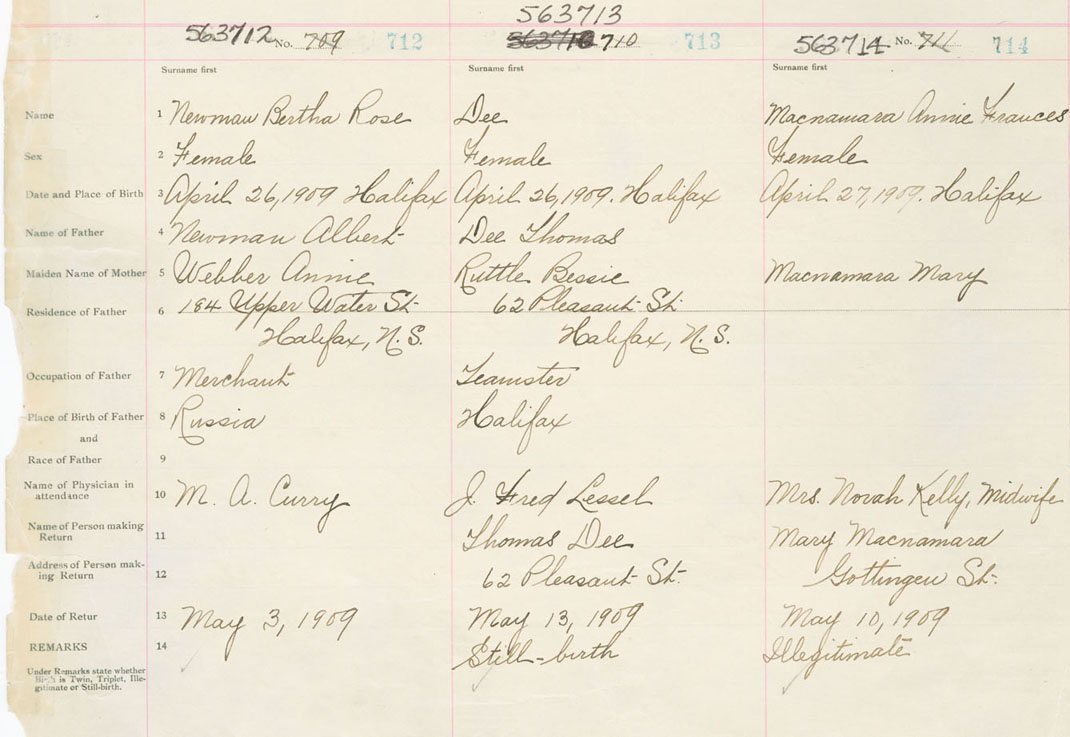 563713
563712 No. 709 712 710 713 563714 No. 711 714
Surname first Surname first Surname first
Name 1 Newman Bertha Rose Dee Macnamara Annie Frances
Sex 2 Female Female Female
Date and Place of Birth 3 April 26, 1909 Halifax April 26, 1909. Halifax April 27, 1909. Halifax
Name of Father 4 Newman Albert Dee Thomas
Maiden Name of Mother 5 Webber Annie Ruttle Bessie Macnamara Mary
Residence of Father 6 184 Upper Water St. 62 Pleasant St.
Halifax, N.S. Halifax, N.S.
Occupation of Father 7 Merchant Teamster
Place of Birth of Father 8 Russia Halifax
and
Race of Father 9
Name of Physician in
attendance 10 M. A. Curry J. Fred Lessel Mrs. Norah Kelly, Midwife
Name of Person making
Return 11 Thomas Dee Mary Macnamara
Address of Person mak-
ing Return 12 62 Pleasant St. Gottingen St.
Date of Retur 13 May 3, 1909 May 13, 1909 May 10, 1909
REMARKS 14 Still-birth Illegitimate
Under Remarks state whether
Birth is Twin, Triplet, Ille-
gitimate or Still-birth.